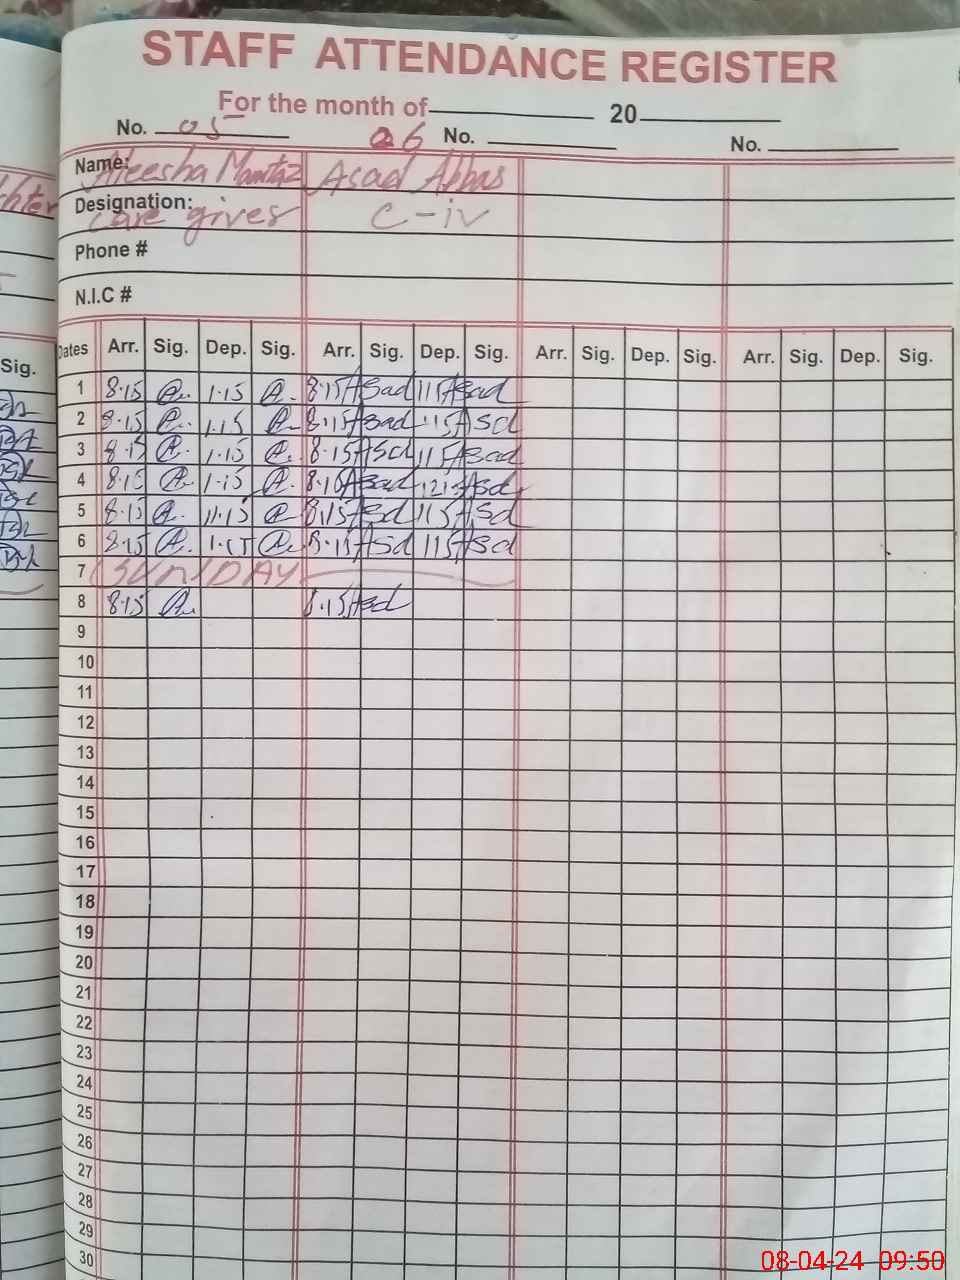 STAFF ATTENDANCE REGISTER
For the month of 20
No. 05 06 No. No.
Name: Aleesha Mamtaz Asad Abbas
Designation: Care gives C-iv
Phone #
N.I.C #
Sig. Dates Arr. Sig. Dep. Sig. Arr. Sig. Dep. Sig. Arr. Sig. Dep. Sig. Arr. Sig. Dep. Sig.
1 8.15 1.15 8.15 Asad 115 Asad
2 8.15 1.15 8.15 Asad 115 Asd
3 8.15 1.15 8.15 Asd 115 Asad
4 1.15 Asad Asd
5 8.15 11.15 8.15 Asd 115 Asd
6 8.15 1.15 8.15 Asd 115 Asd
7 SUNDAY
8 8.15 8.15 Asd
9
10
11
12
13
14
15
16
17
18
19
20
21
22
23
24
25
26
27
28
29
30
08-04-24 09:50